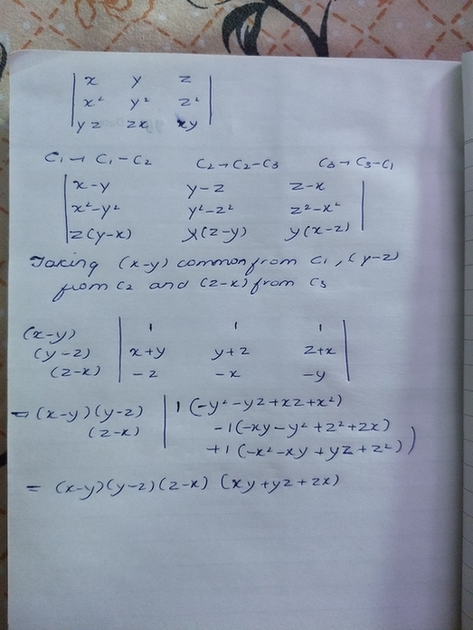 | x y z |
| x² y² z² |
| yz zx xy |
C₁→ C₁-C₂ C₂→C₂-C₃ C₃→C₃-C₁
| x-y y-z z-x |
| x²-y² y²-z² z²-x² |
| z(y-x) x(z-y) y(x-z) |
Taking (x-y) common from C₁, (y-z)
from C₂ and (z-x) from C₃
(x-y) | 1 1 1 |
(y-z) | x+y y+z z+x |
(z-x) | -z -x -y |
= (x-y)(y-z) | 1(-y²-yz+xz+x²)
(z-x) -1(-xy-y²+z²+zx)
+1(-x²-xy+yz+z²) )
= (x-y)(y-z)(z-x) (xy+yz+zx)